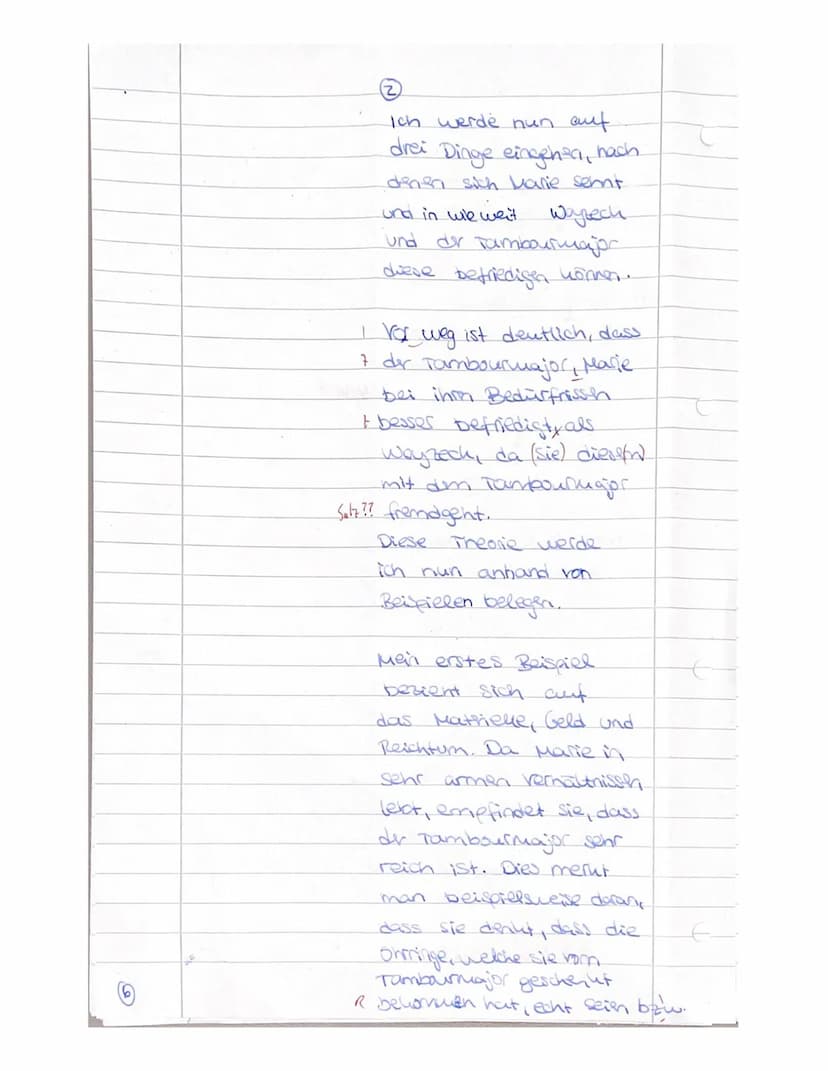 2
Ich werde nun auf
drei Dinge eingehen, nach
denen sich Marie sehnt
und in wie weit Woyzeck
und der Tambourmajor
diese befriedigen können.
| Vor weg ist deutlich, dass
7 der Tambourmajor, Marie
bei ihren Bedürfnissen
+ besser befriedigt, als
Woyzeck, da (sie) diese(n)
mit dem Tambourmajor
Satz?? fremdgeht.
Diese Theorie werde
ich nun anhand von
Beispielen belegen.
Mein erstes Beispiel
bezieht sich auf
das Matrielle, Geld und
Reichtum. Da Marie in
sehr armen Verhältnissen
lebt, empfindet sie, dass
der Tambourmajor sehr
reich ist. Dies merkt
man beispielsweise daran,
dass sie denkt, dass die
Orringe, welche sie vom
Tambourmajor geschenkt
R bekommen hat, echt seien bzw.
6